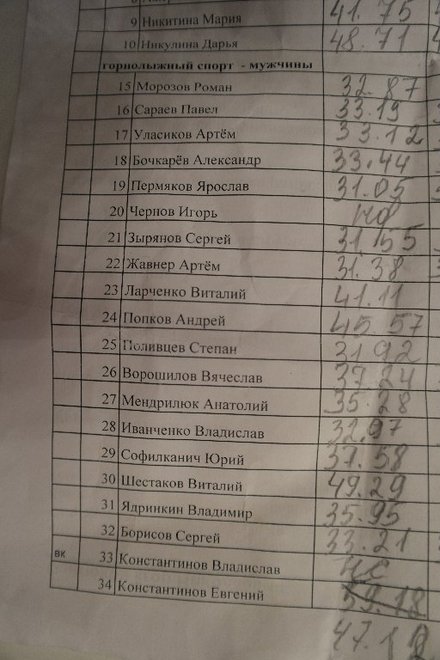 9 Никитина Мария 41.75
10 Никулина Дарья 48.71
горнолыжный спорт - мужчины
15 Морозов Роман 32.87
16 Сараев Павел 33.19
17 Уласиков Артём 33.12
18 Бочкарёв Александр 33.44
19 Пермяков Ярослав 31.05
20 Чернов Игорь
21 Зырянов Сергей 31.55
22 Жавнер Артём 31.38
23 Ларченко Виталий 41.11
24 Попков Андрей 45.57
25 Поливцев Степан 31.92
26 Ворошилов Вячеслав 37.24
27 Мендрилюк Анатолий 35.28
28 Иванченко Владислав 32.97
29 Софилканич Юрий 37.58
30 Шестаков Виталий 49.29
31 Ядринкин Владимир 35.95
32 Борисов Сергей 33.21
вк 33 Константинов Владислав
34 Константинов Евгений